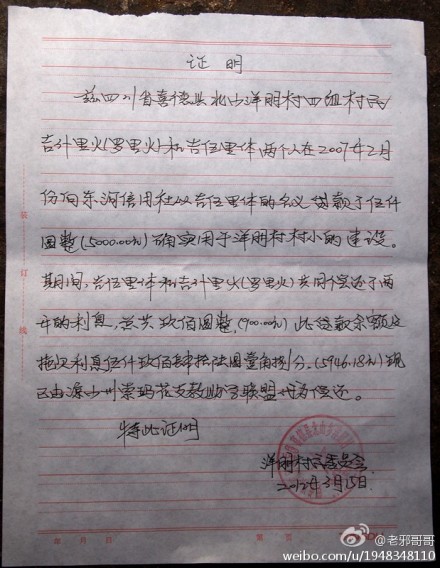 证明
兹四川省喜德县北山洋朋村四组村民
吉什里火(罗里火)和吉伍里体两个人在2007年2月
份向东河信用社以吉伍里体的名义贷款了伍仟
圆整(5000.00元)确实用于洋朋村村小的建设。
其间,吉伍里体和吉什里火(罗里火)共同偿还了两
年的利息,共玖佰圆整,(900.00元)此贷款余额及
拖欠利息伍仟玖佰肆拾陆圆壹角捌分,(5946.18元)现
已由凉山州索玛花支教助学联盟代为偿还。
特此证明
洋朋村民委员会
2012年3月15日
装
订
线
年 月 日
第 页
@老邪哥哥
weibo.com/u/1948348110